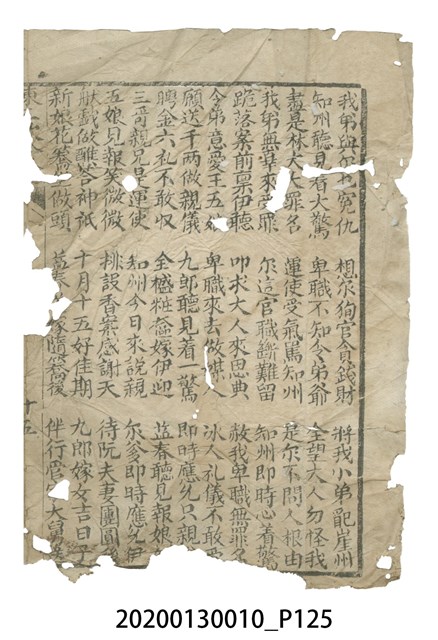 我弟與尔冤仇 想尔狗官貪錢財 將我小弟配崖州
知州聽見着大驚 卑職不知令弟爺 全望大人勿怪我
盡是林大大罪名 運使受氣罵知州 是尔不問人根由
我弟無辜來受罪 尔這官職斷難留 知州即時心着驚
跪落案前稟伊聽 叩求大人來恩典 赦我卑職無罪名
令弟意愛王五娘 卑職來去做媒人 冰人礼儀不敢受
願送千兩做親儀 九郎聽見着一驚 即時應允只親
聘金六礼不敢収 全櫃粧奩嫁伊迎 益春聽見報娘
三哥親兄是運使 知州今日來說親 尔爹即時應允伊
五娘見報笑微微 排設香案感謝天 待阮夫妻團圓
献戲做醮答神祇 十月十五好佳期 九郎嫁女吉日子
新娘花轎做頭 嫁隨簥後 伴行 大舅
陳 十五
20200130010_P125